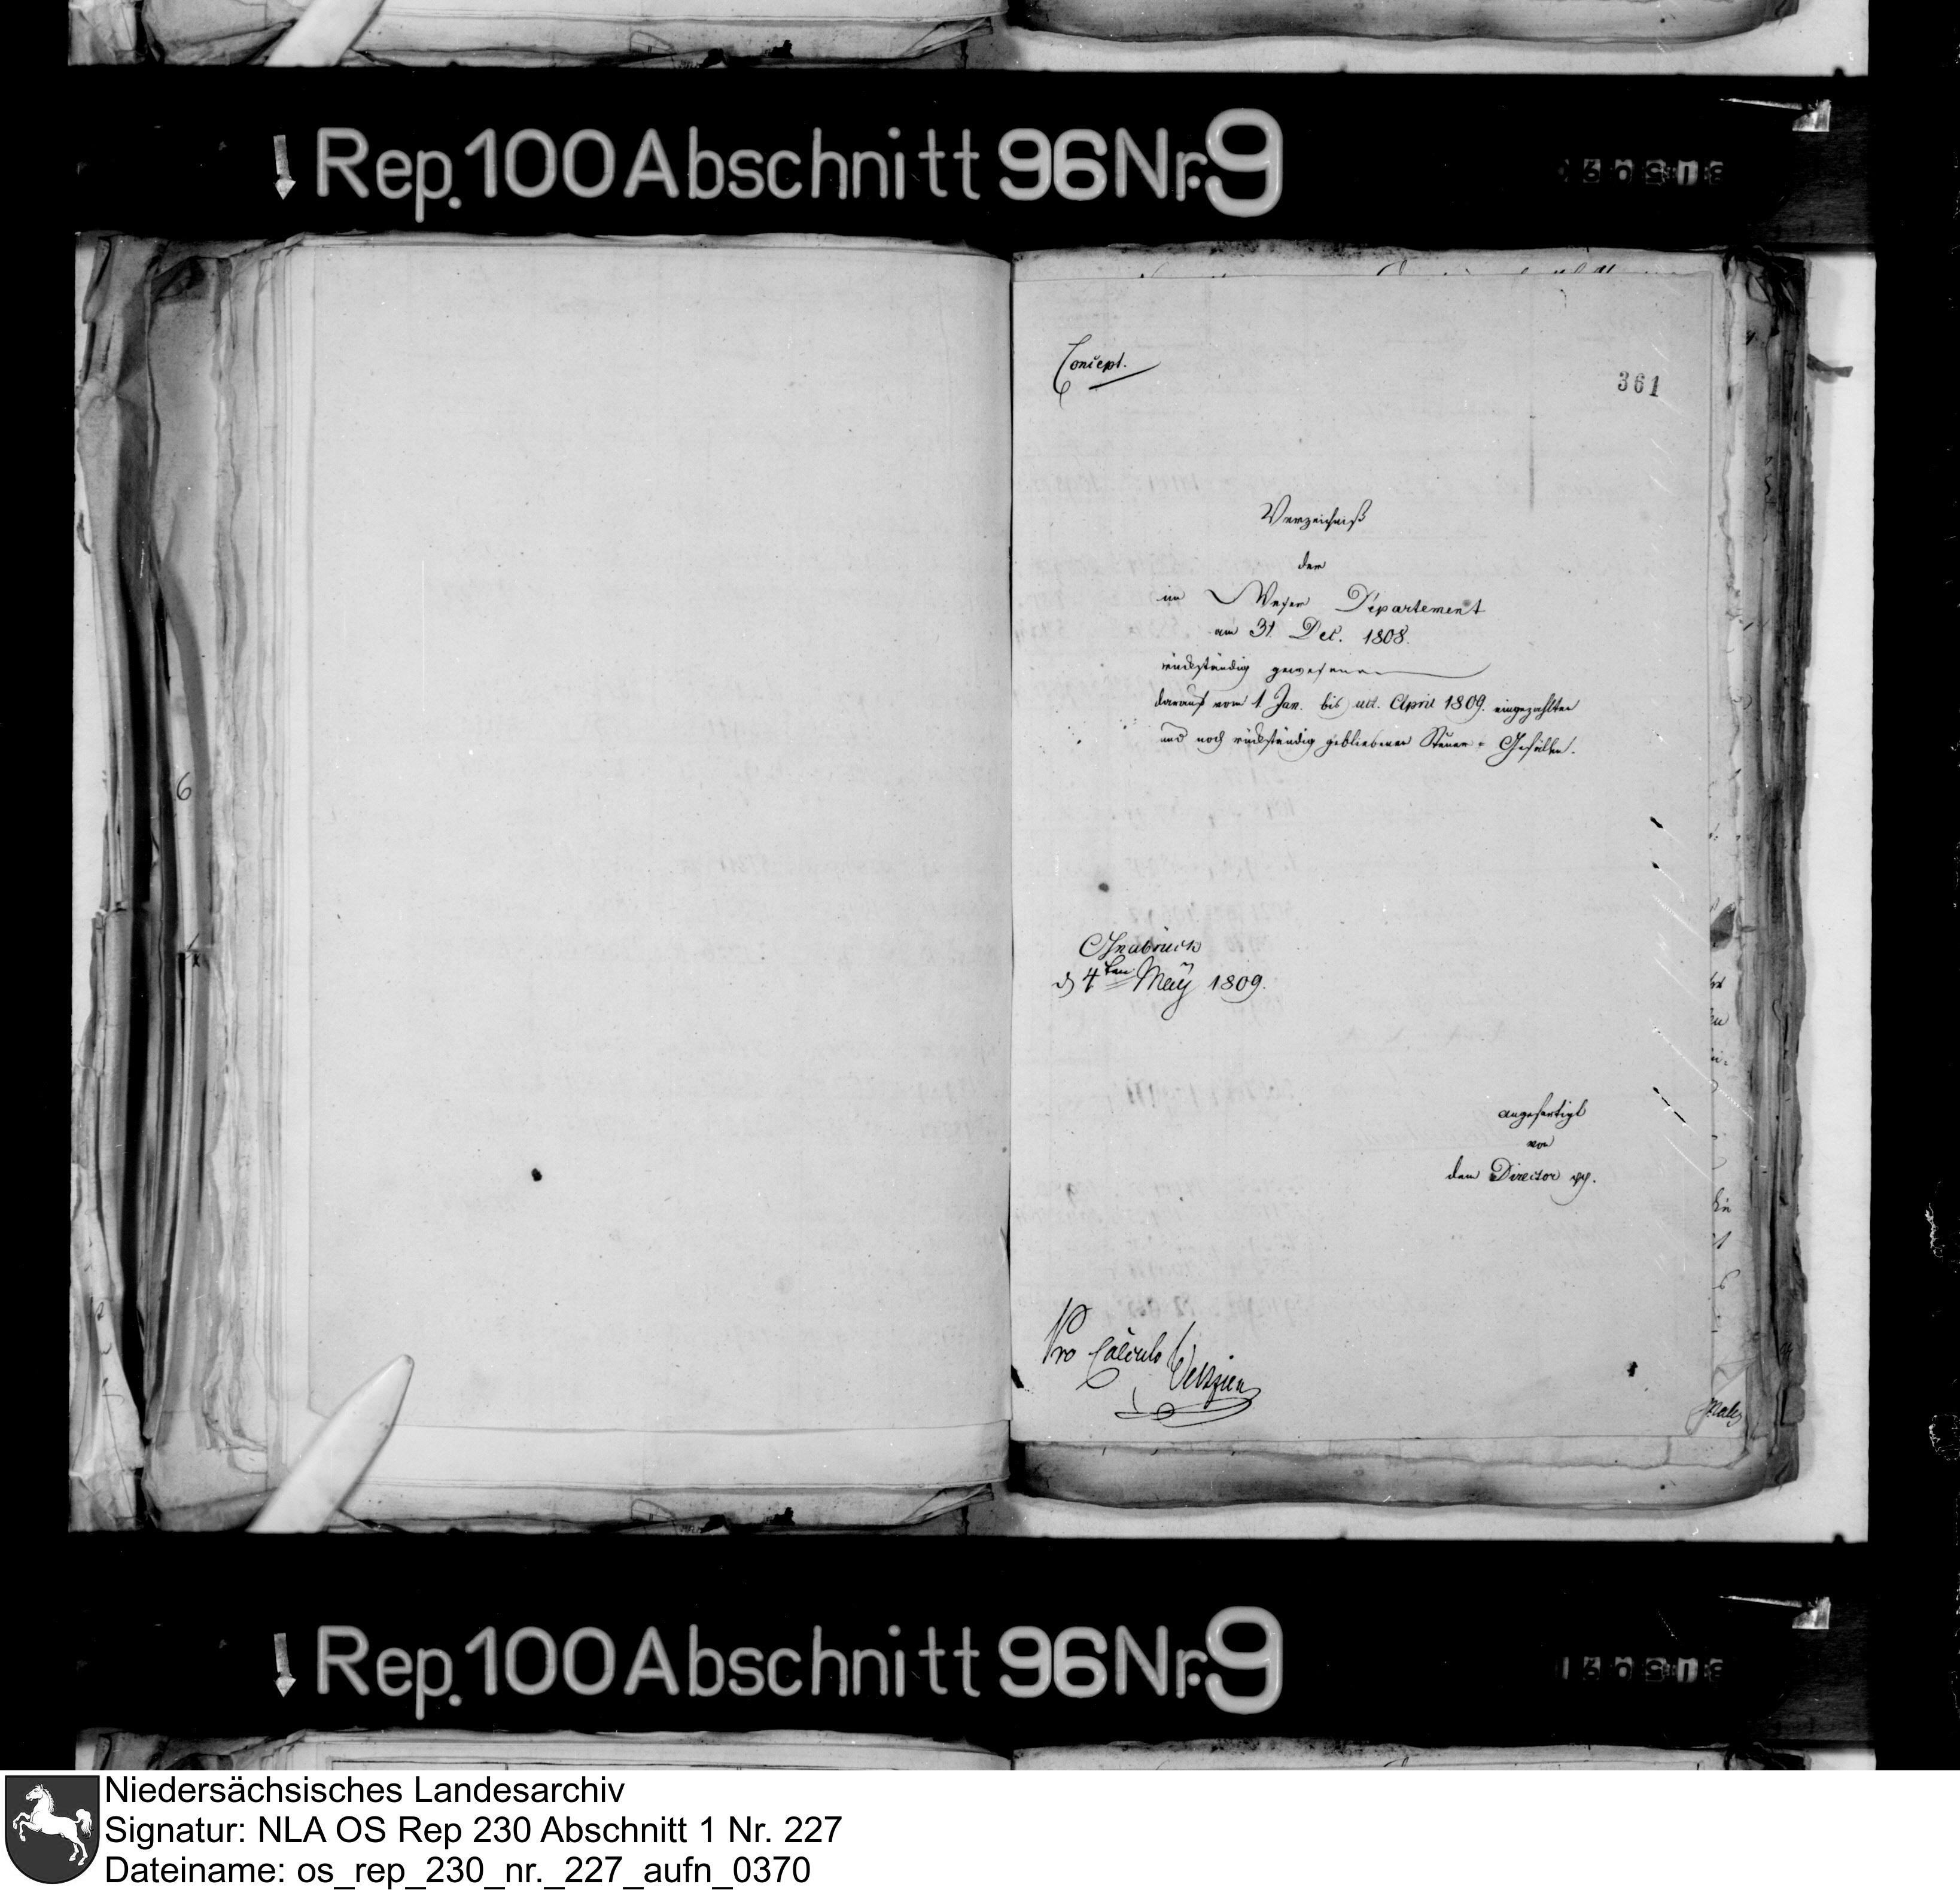 Rep. 100 Abschnitt 96 Nr. 9
Concept.
361
Verzeichniß
der
im Weser Département
am 31. Dec. 1808.
rückständig gewesenen
darauf vom 1. Jan. bis ult. April 1809. eingezahlten
und noch rückständig gebliebenen Steuer-Gefälle.
Osnabrück
d 4ten May 1809.
angefertigt
von
dem Director
Pro Calculo
6
Rep. 100 Abschnitt 96 Nr. 9
Niedersächsisches Landesarchiv
Signatur: NLA OS Rep 230 Abschnitt 1 Nr. 227
Dateiname: os_rep_230_nr._227_aufn_0370